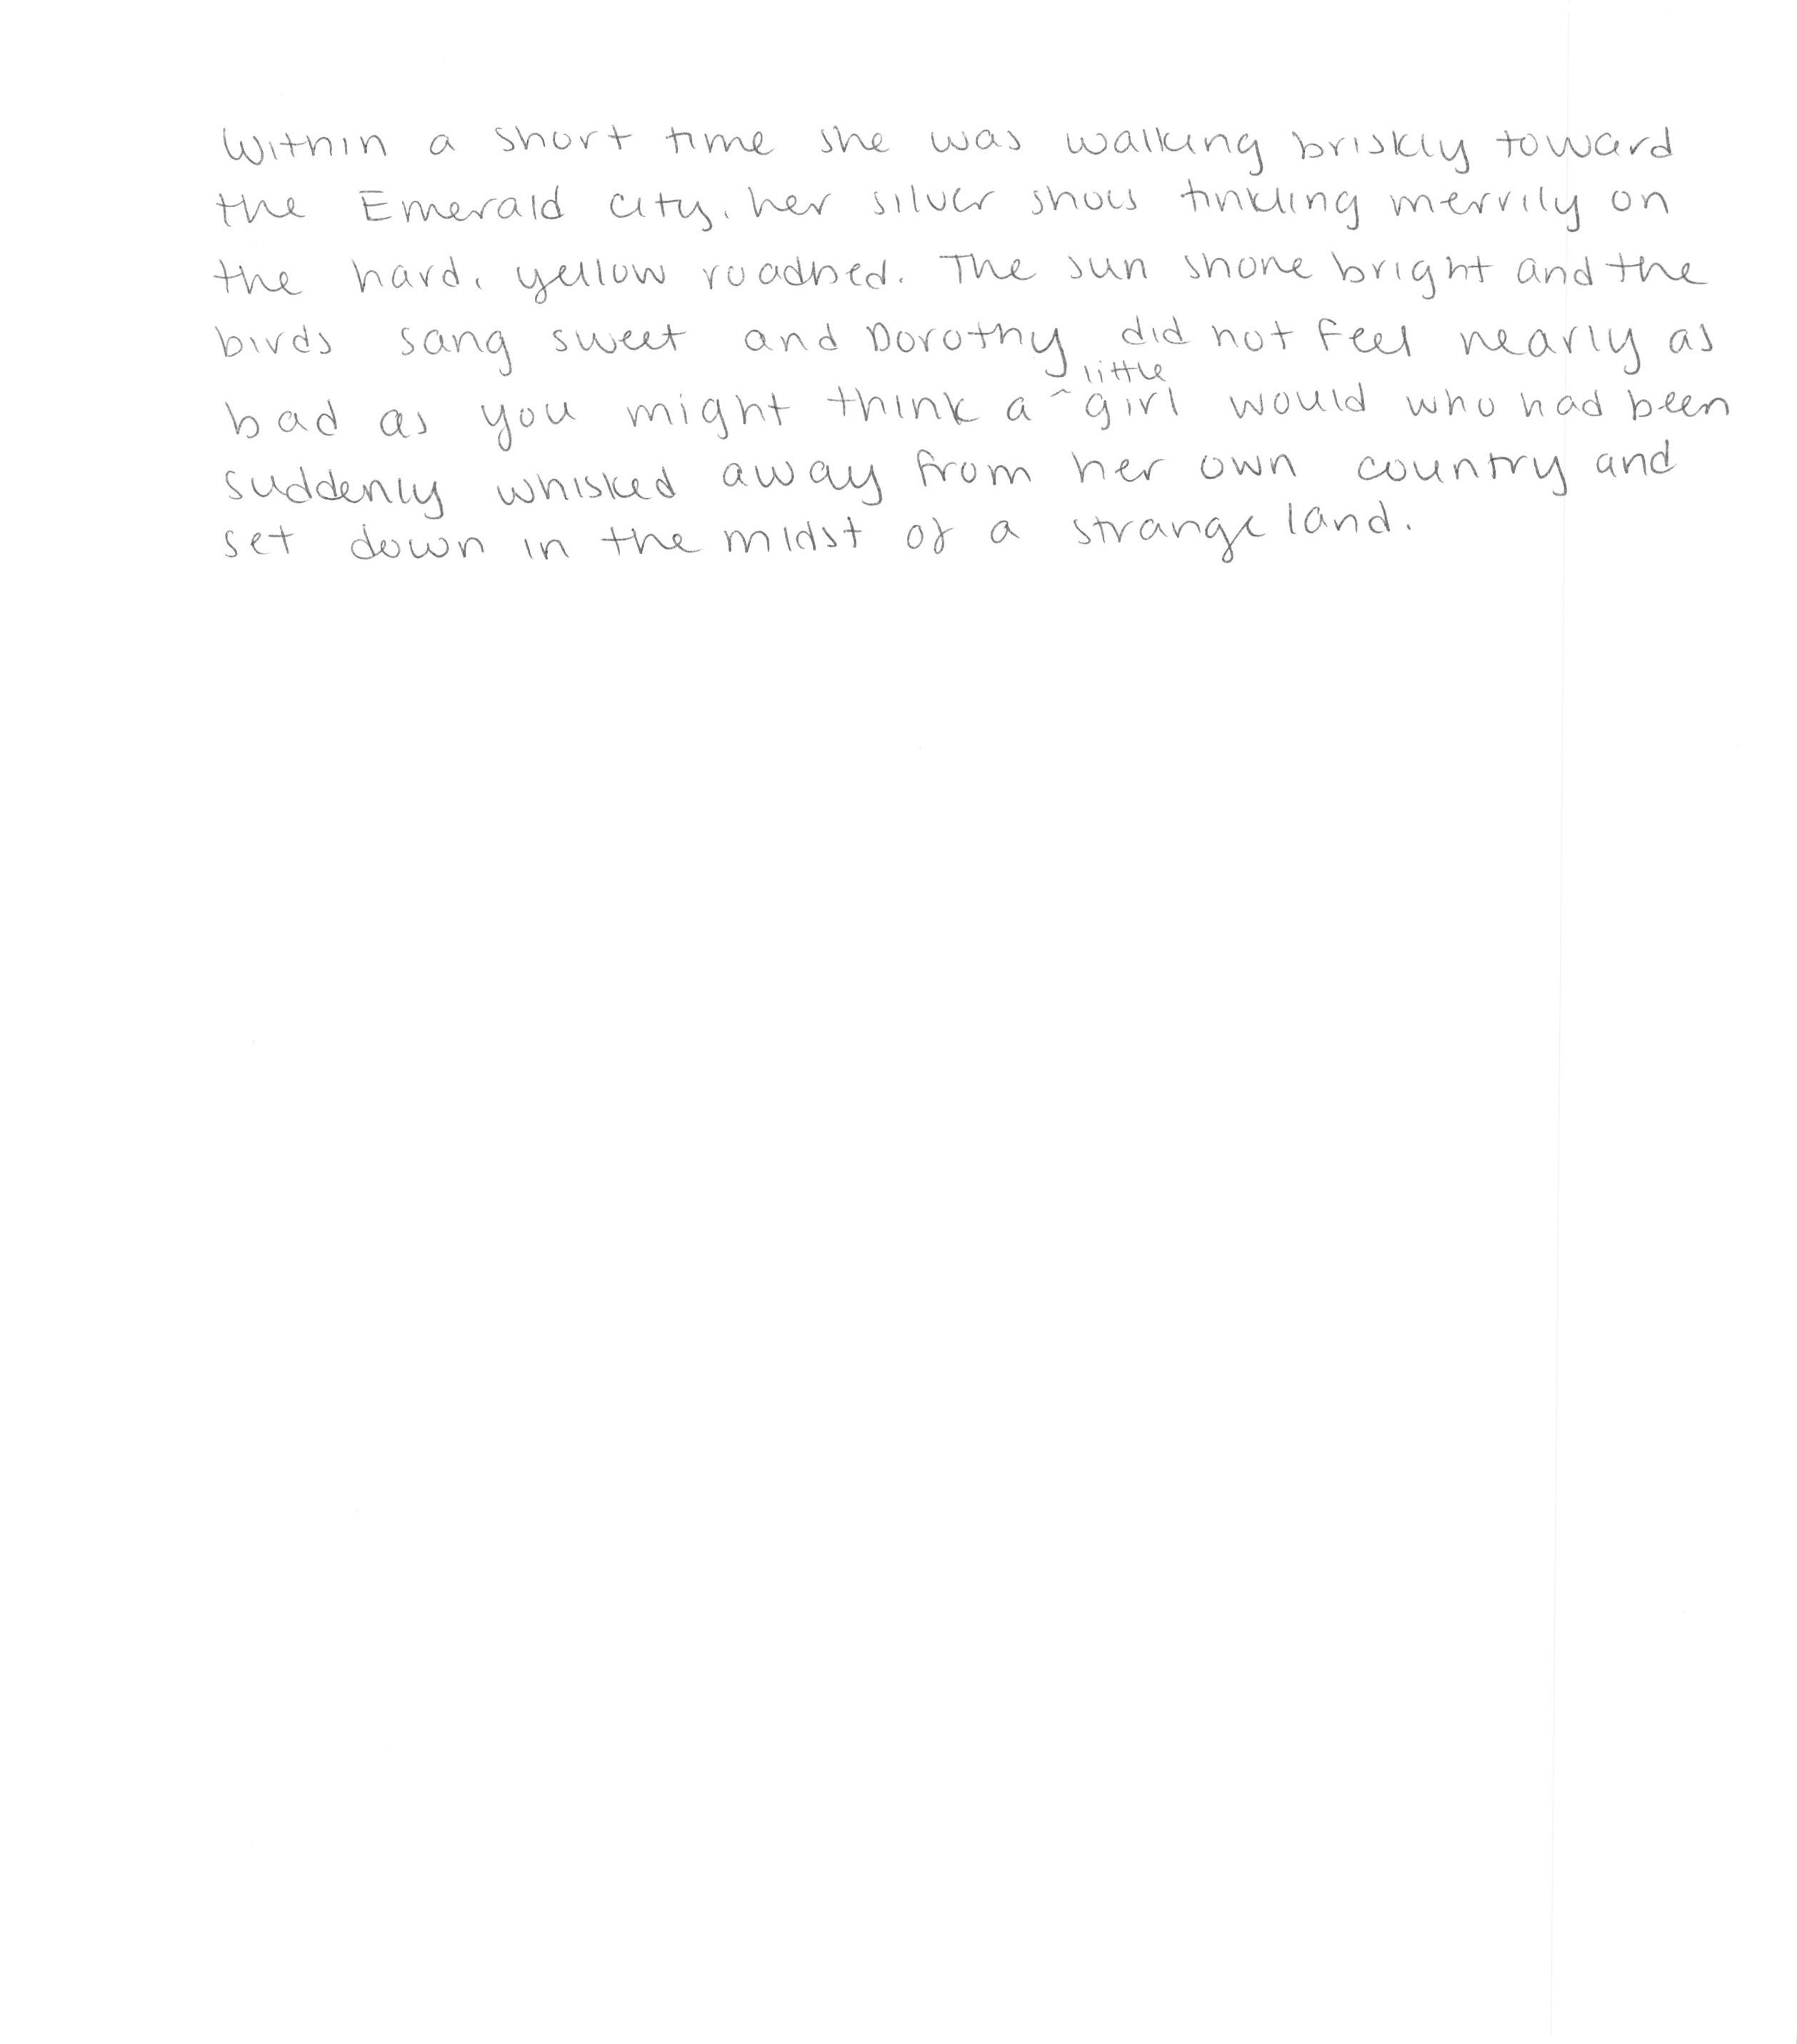 Within a short time she was walking briskly toward
the Emerald City, her silver shoes tinkling merrily on
the hard, yellow roadbed. The sun shone bright and the
birds sang sweet and Dorothy did not feel nearly as
bad as you might think a ^little girl would who had been
suddenly whisked away from her own country and
set down in the midst of a strange land.